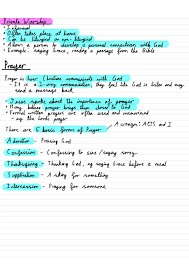 Private Worship
• Informal
• Often takes place at home
• Can be liturgical or non-liturgical
• Allows a person to develop a personal connection with God
• Example: saying Grace, reading a passage from the Bible
Prayer
Prayer is how Christians communicate with God
• It is a 2-way communication, they feel like God is listen and may
send a message back
• Jesus speaks about the importance of prayer
• Many believe prayer brings them closer to God
• Formal written prayers are often used and memorised
- eg. the Lords prayer
There are 5 basic forms of Prayer
Acronym: ACTS and I
Adoration - Praising God
Confession - Confessing to sins / saying sorry
Thanksgiving - Thanking God, eg saying Grace before a meal
Supplication - Asking for something
Intercession - Praying for someone